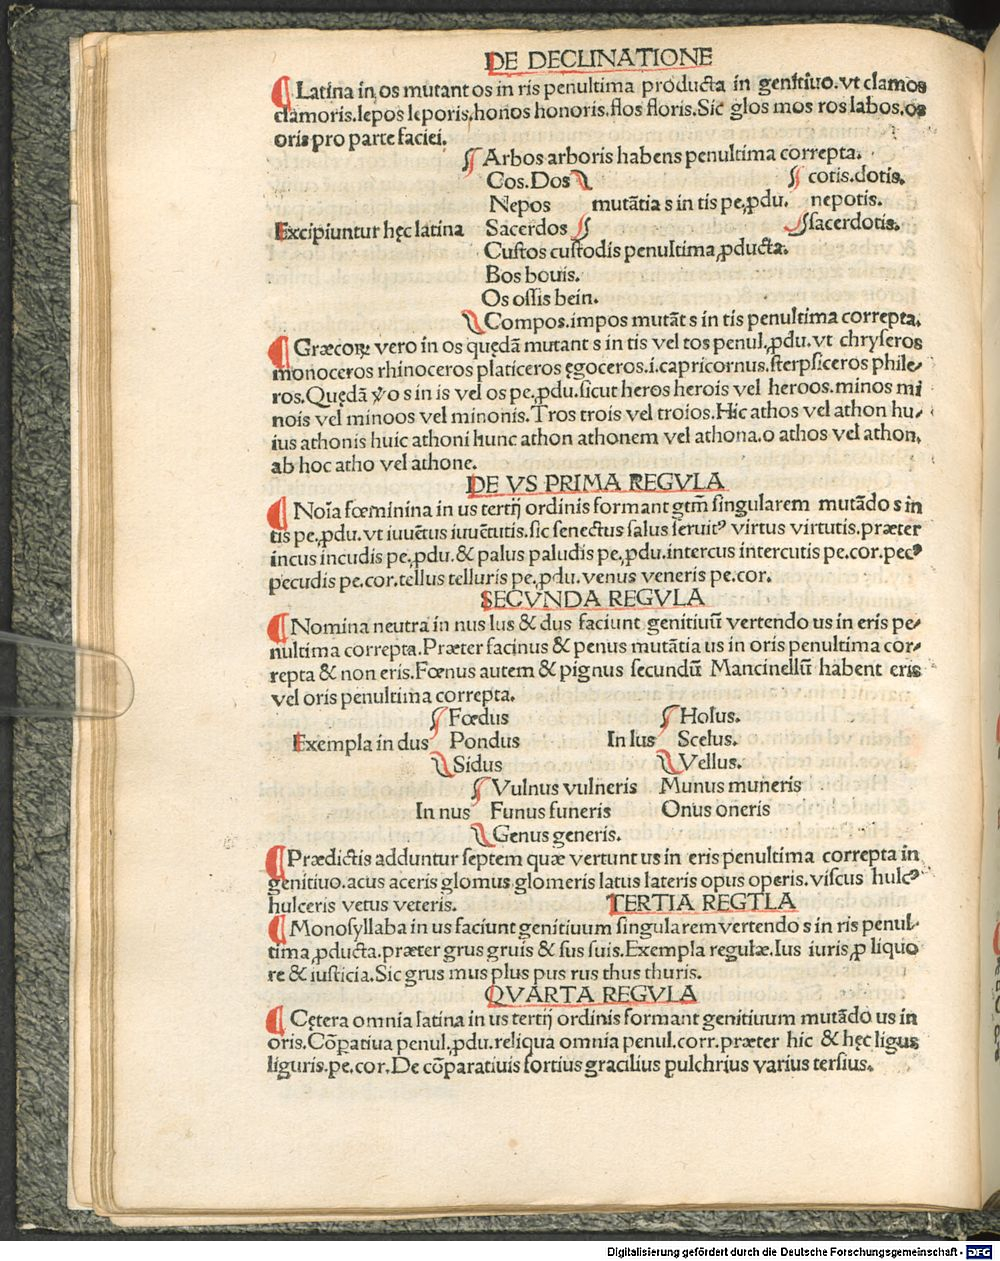 DE DECLINATIONE
Latina in os mutant os in ris penultima producta in genitiuo. vt clamos
clamoris. lepos leporis. honos honoris. flos floris. Sic glos mos ros labos. os
oris pro parte faciei.
Arbos arboris habens penultima correpta.
Cos. Dos cotis. dotis.
Nepos mutãtia s in tis pe. ꝓdu. nepotis.
Excipiuntur hęc latina Sacerdos sacerdotis.
Custos custodis penultima ꝓducta.
Bos bouis.
Os ossis bein.
Compos. impos mutãt s in tis penultima correpta.
Græcoꝝ vero in os quędã mutant s in tis vel tos penul. ꝓdu. vt chryseros
monoceros rhinoceros platiceros ęgoceros. i. capricornus. sterpsiceros phile-
ros. Quędã ꝟo s in is vel os pe. ꝓdu. sicut heros herois vel heroos. minos mi
nois vel minoos vel minonis. Tros trois vel troios. Hic athos vel athon hu-
ius athonis huic athoni hunc athon athonem vel athona. o athos vel athon.
ab hoc atho vel athone.
DE VS PRIMA REGVLA
Noĩa fœminina in us tertij ordinis formant gtm̃ singularem mutãdo s in
tis pe. ꝓdu. vt iuuẽtus iuuẽtutis. sic senectus salus seruitꝰ virtus virtutis. præter
incus incudis pe. ꝓdu. & palus paludis pe. ꝓdu. intercus intercutis pe. cor. pecꝰ
pecudis pe. cor. tellus telluris pe. ꝓdu. venus veneris pe. cor.
SECVNDA REGVLA
Nomina neutra in nus lus & dus faciunt genitiuũ vertendo us in eris pe-
nultima correpta. Præter facinus & penus mutãtia us in oris penultima cor-
repta & non eris. Fœnus autem & pignus secundũ Mancinellũ habent eris
vel oris penultima correpta.
Fœdus Holus.
Exempla in dus Pondus In lus Scelus.
Sidus Vellus.
Vulnus vulneris Munus muneris
In nus Funus funeris Onus oneris
Genus generis.
Prædictis adduntur septem quæ vertunt us in eris penultima correpta in
genitiuo. acus aceris glomus glomeris latus lateris opus operis. viscus hulcꝰ
hulceris vetus veteris. TERTIA REGTLA
Monosyllaba in us faciunt genitiuum singularem vertendo s in ris penul-
tima ꝓducta. præter grus gruis & sus suis. Exempla regulæ. Ius iuris ꝓ liquo
re & iusticia. Sic grus mus plus pus rus thus thuris.
QVARTA REGVLA
Cętera omnia latina in us tertij ordinis formant genitiuum mutãdo us in
oris. Cõꝑatiua penul. ꝓdu. reliqua omnia penul. corr. præter hic & hęc ligus
liguris. pe. cor. De cõparatiuis fortius gracilius pulchrius varius tersius.
Digitalisierung gefördert durch die Deutsche Forschungsgemeinschaft - DFG